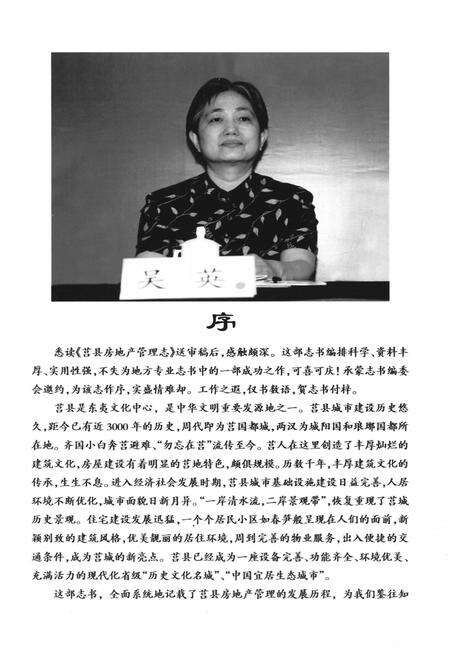 吴 英
序
悉读《莒县房地产管理志》送审稿后，感触颇深。这部志书编排科学、资料丰
厚、实用性强，不失为地方专业志书中的一部成功之作，可喜可庆！承蒙志书编委
会邀约，为该志作序，实盛情难却。工作之遐，仅书数语，贺志书付梓。
莒县是东夷文化中心，是中华文明重要发源地之一。莒县城市建设历史悠
久，距今已有近3000年的历史，周代即为莒国都城，两汉为城阳国和琅琊国都所
在地。齐国小白奔莒避难、“勿忘在莒”流传至今。莒人在这里创造了丰厚灿烂的
建筑文化，房屋建设有着明显的莒地特色，颇俱规模。历数千年，丰厚建筑文化的
传承，生生不息。进入经济社会发展时期，莒县城市基础设施建设日益完善，人居
环境不断优化，城市面貌日新月异。“一岸清水流，二岸景观带”，恢复重现了莒城
历史景观。住宅建设发展迅猛，一个个居民小区如春笋般呈现在人们的面前，新
颖别致的建筑风格，优美靓丽的居住环境，周到完善的物业服务，出入便捷的交
通条件，成为莒城的新亮点。莒县已经成为一座设备完善、功能齐全、环境优美、
充满活力的现代化省级“历史文化名城”、“中国宜居生态城市”。
这部志书，全面系统地记载了莒县房地产管理的发展历程，为我们鉴往知